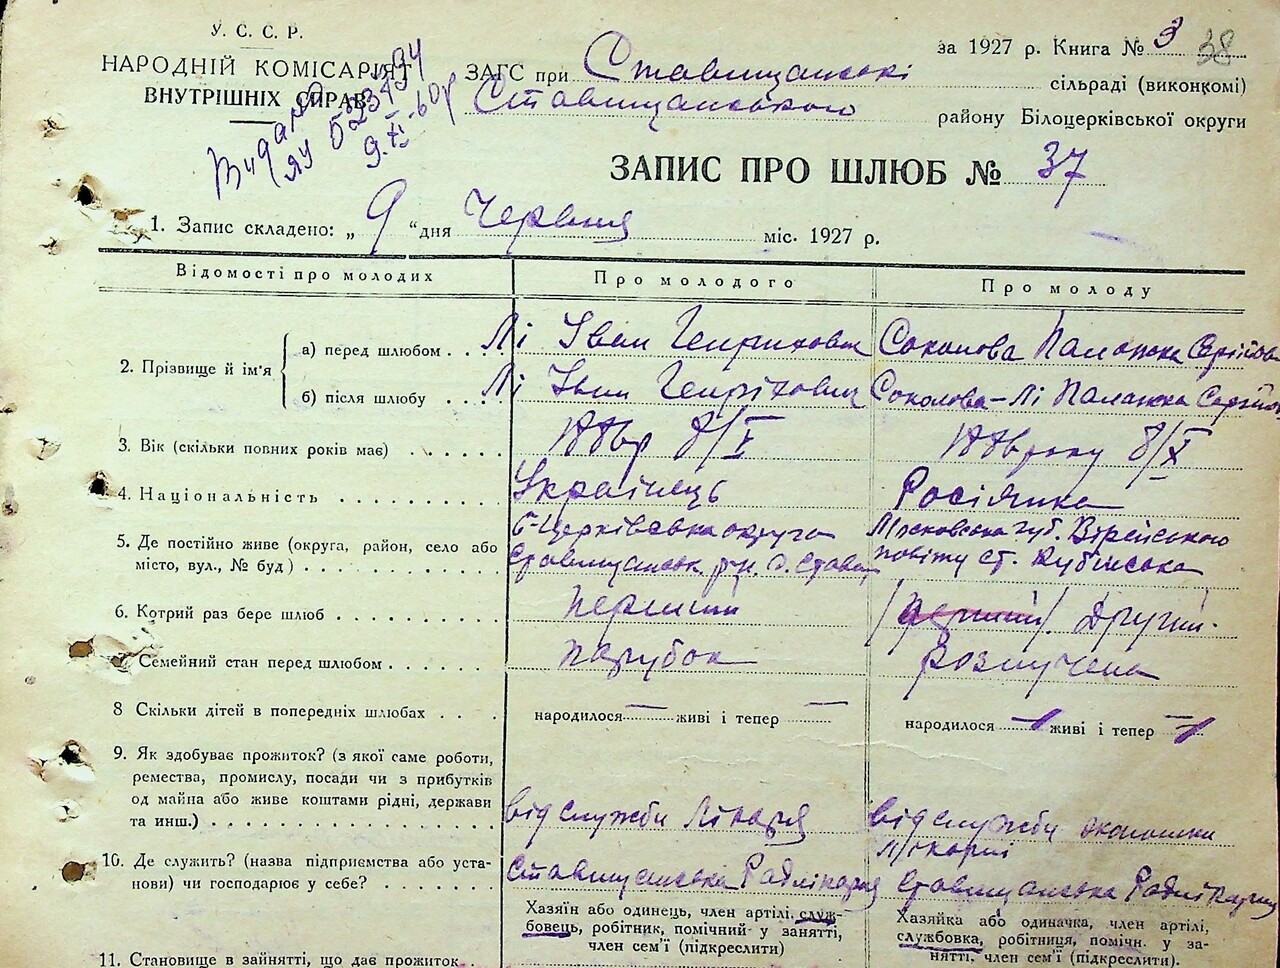 У. С. С. Р.
НАРОДНІЙ КОМІСАРІЯТ
ВНУТРІШНІХ СПРАВ
Видано
ЯУ 023494
9.XI-60р
за 1927 р. Книга № 3 38
ЗАГС при Ставищанські сільраді (виконкомі)
Ставищанського району Білоцерківської округи
ЗАПИС ПРО ШЛЮБ № 37
1. Запис складено: „ 9 “ дня Червня міс. 1927 р.
Відомості про молодих Про молодого Про молоду
2. Прізвище й ім'я
а) перед шлюбом . . . Лі Іван Генрихович Соколова
б) після шлюбу . . . . Лі Іван Генріхович Соколова-Лі
3. Вік (скільки повних років має) . . . . . . 8/V 8/X
4. Національність . . . . . . . . . . Українець Росіянка
5. Де постійно живе (округа, район, село або місто, вул., № буд) . . . . . . . . . . .
Б-Церківська округа
Ставищанськ р-н.
Московська губ. Вірейського
повіту ст. Кубінська
6. Котрий раз бере шлюб . . . . . . . . . перший /перший/. Другий.
Семейний стан перед шлюбом . . . . . . парубок Розлучена
8 Скільки дітей в попередніх шлюбах . . . народилося — живі і тепер — народилося 1 живі і тепер 1
9. Як здобуває прожиток? (з якої саме роботи, ремества, промислу, посади чи з прибутків од майна або живе коштами рідні, держави та инш.) . . . . . . . . . . . . . . .
від служби лікаря
від служби економки
лікарні
10. Де служить? (назва підприємства або установи) чи господарює у себе? . . . . . . .
Ставищанська Радлікарня
Ставищанська Радлікарня
Хазяїн або одинець, член артілі, служ-
бовець, робітник, помічний у занятті,
член сем'ї (підкреслити)
Хазяйка або одиначка, член артілі,
службовка, робітниця, помічн. у за-
нятті, член сем'ї (підкреслити).
11. Становище в зайнятті, що дає прожиток .